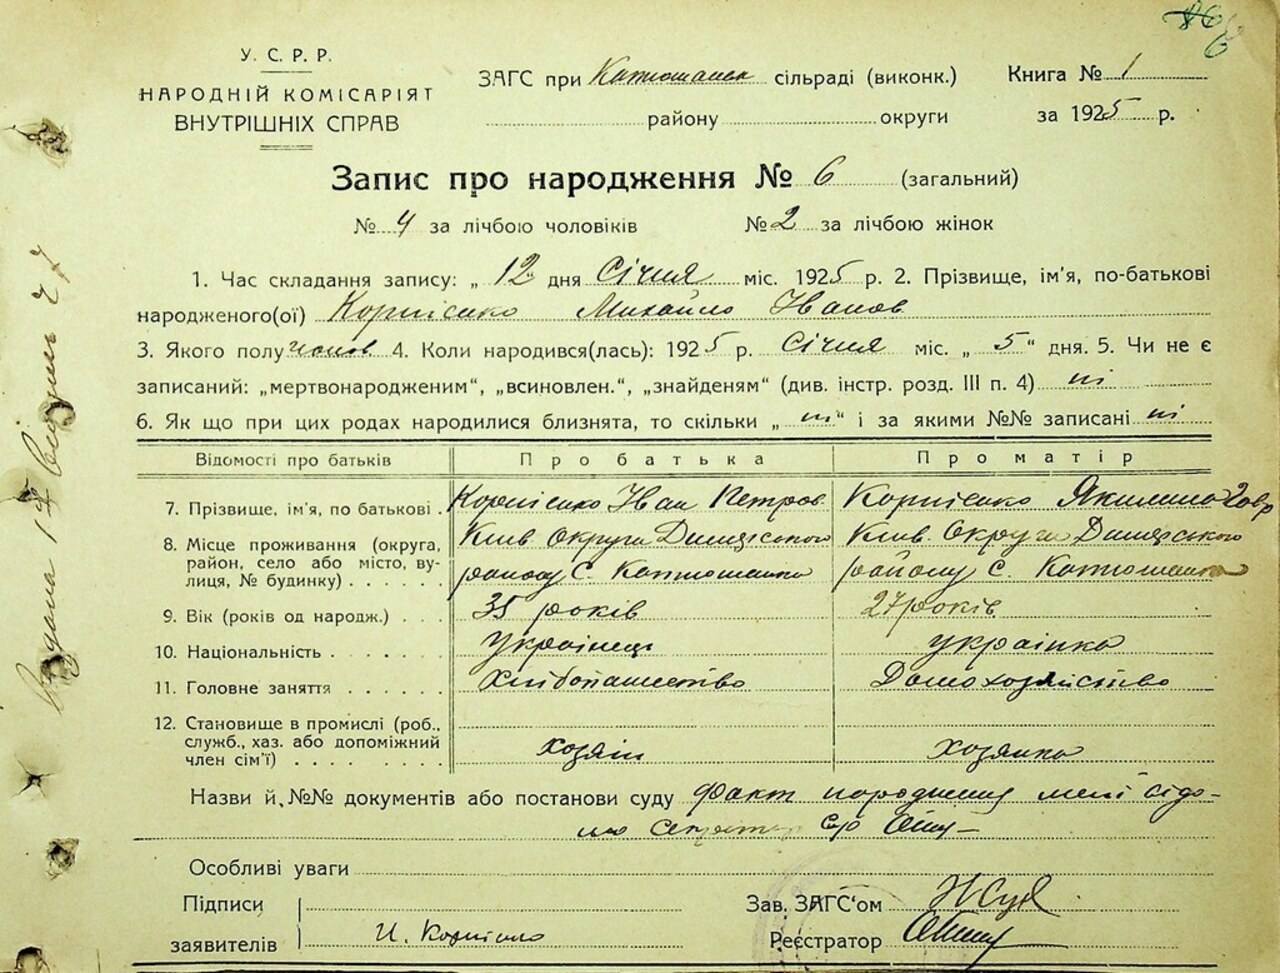 У. С. Р. Р.
НАРОДНІЙ КОМІСАРІЯТ
ВНУТРІШНІХ СПРАВ
ЗАГС при Катюжанск сільраді (виконк.)
району округи
Книга № 1
за 1925 р.
Запис про народження № 6 (загальний)
№ 4 за лічбою чоловіків № 2 за лічбою жінок
1. Час складання запису: „ 12 дня Січня міс. 1925 р. 2. Прізвище, ім'я, по-батькові
народженого(ої) Корнієнко Михайло Іванов
3. Якого полу чолов 4. Коли народився(лась): 1925 р. Січня міс. „ 5 “ дня. 5. Чи не є
записаний: „мертвонародженим“, „всиновлен.“, „знайденям“ (див. інстр. розд. III п. 4) ні
6. Як що при цих родах народилися близнята, то скільки „ ні “ і за якими №№ записані ні
Відомості про батьків Про батька Про матір
7. Прізвище, ім'я, по батькові . Корнієнко Іван Петров Корнієнко Якилина Гавр
8. Місце проживання (округа, Київ Округа Димерського Київ. Округа Димерського
район, село або місто, ву-
лиця, № будинку) . . . . . . району С. Катюжанка району с. Катюжанка
9. Вік (років од народж.) . . . 35 років 27 років
10. Національність . . . . . . українець українка
11. Головне заняття . . . . . . Хлібопашество Домохозяйство
12. Становище в промислі (роб.,
служб., хаз. або допоміжний
член сім'ї) . . . . . . . . . хозяін хозяйка
Назви й №№ документів або постанови суду Факт народження мені відо-
мо Секретар с/р
Особливі уваги
Підписи
заявителів И. Корнієнко
Зав. ЗАГС'ом
Реєстратор